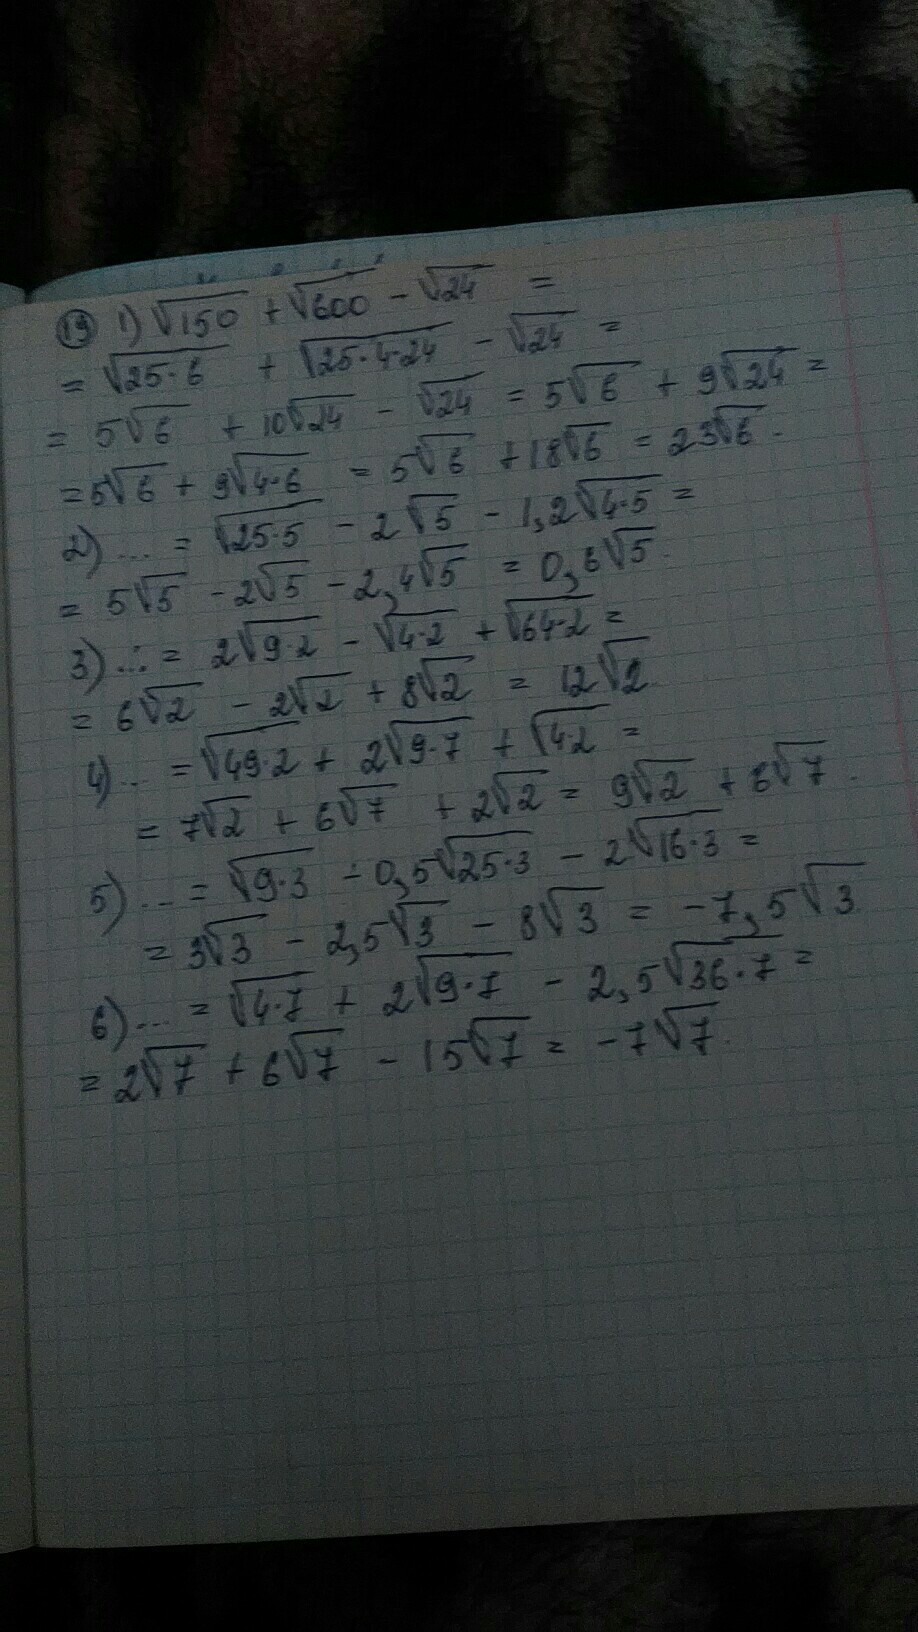 19) 1) √150 + √600 - √24 =
= √25·6 + √25·4·24 - √24 =
= 5√6 + 10√24 - √24 = 5√6 + 9√24 =
= 5√6 + 9√4·6 = 5√6 + 18√6 = 23√6.
2) ... = √25·5 - 2√5 - 1,2√4·5 =
= 5√5 - 2√5 - 2,4√5 = 0,6√5.
3) ... = 2√9·2 - √4·2 + √64·2 =
= 6√2 - 2√2 + 8√2 = 12√2.
4) ... = √49·2 + 2√9·7 + √4·2 =
= 7√2 + 6√7 + 2√2 = 9√2 + 6√7.
5) ... = √9·3 - 0,5√25·3 - 2√16·3 =
= 3√3 - 2,5√3 - 8√3 = -7,5√3.
6) ... = √4·7 + 2√9·7 - 2,5√36·7 =
= 2√7 + 6√7 - 15√7 = -7√7.